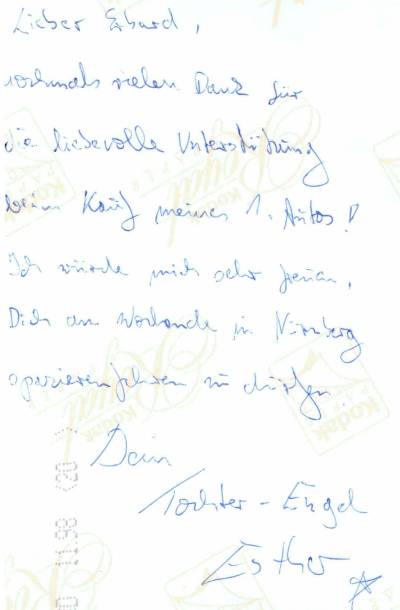 Lieber Erhard,
nochmals vielen Dank für
die liebevolle Unterstützung
beim Kauf meines 1. Autos!
Ich würde mich sehr freuen,
Dich am Wochende in Nürnberg
spazierenfahren zu dürfen
Dein
Tochter-Engel
Esther